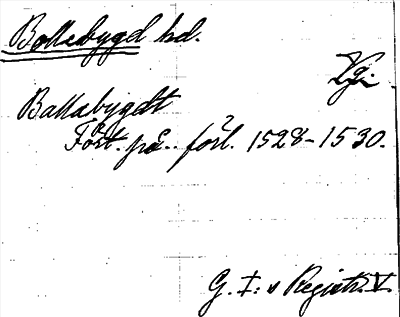 Bollebygd hd.
Vgi.
Ballabygdt
Fört. på förl. 1528-1530.
G. I:s Registr. V.